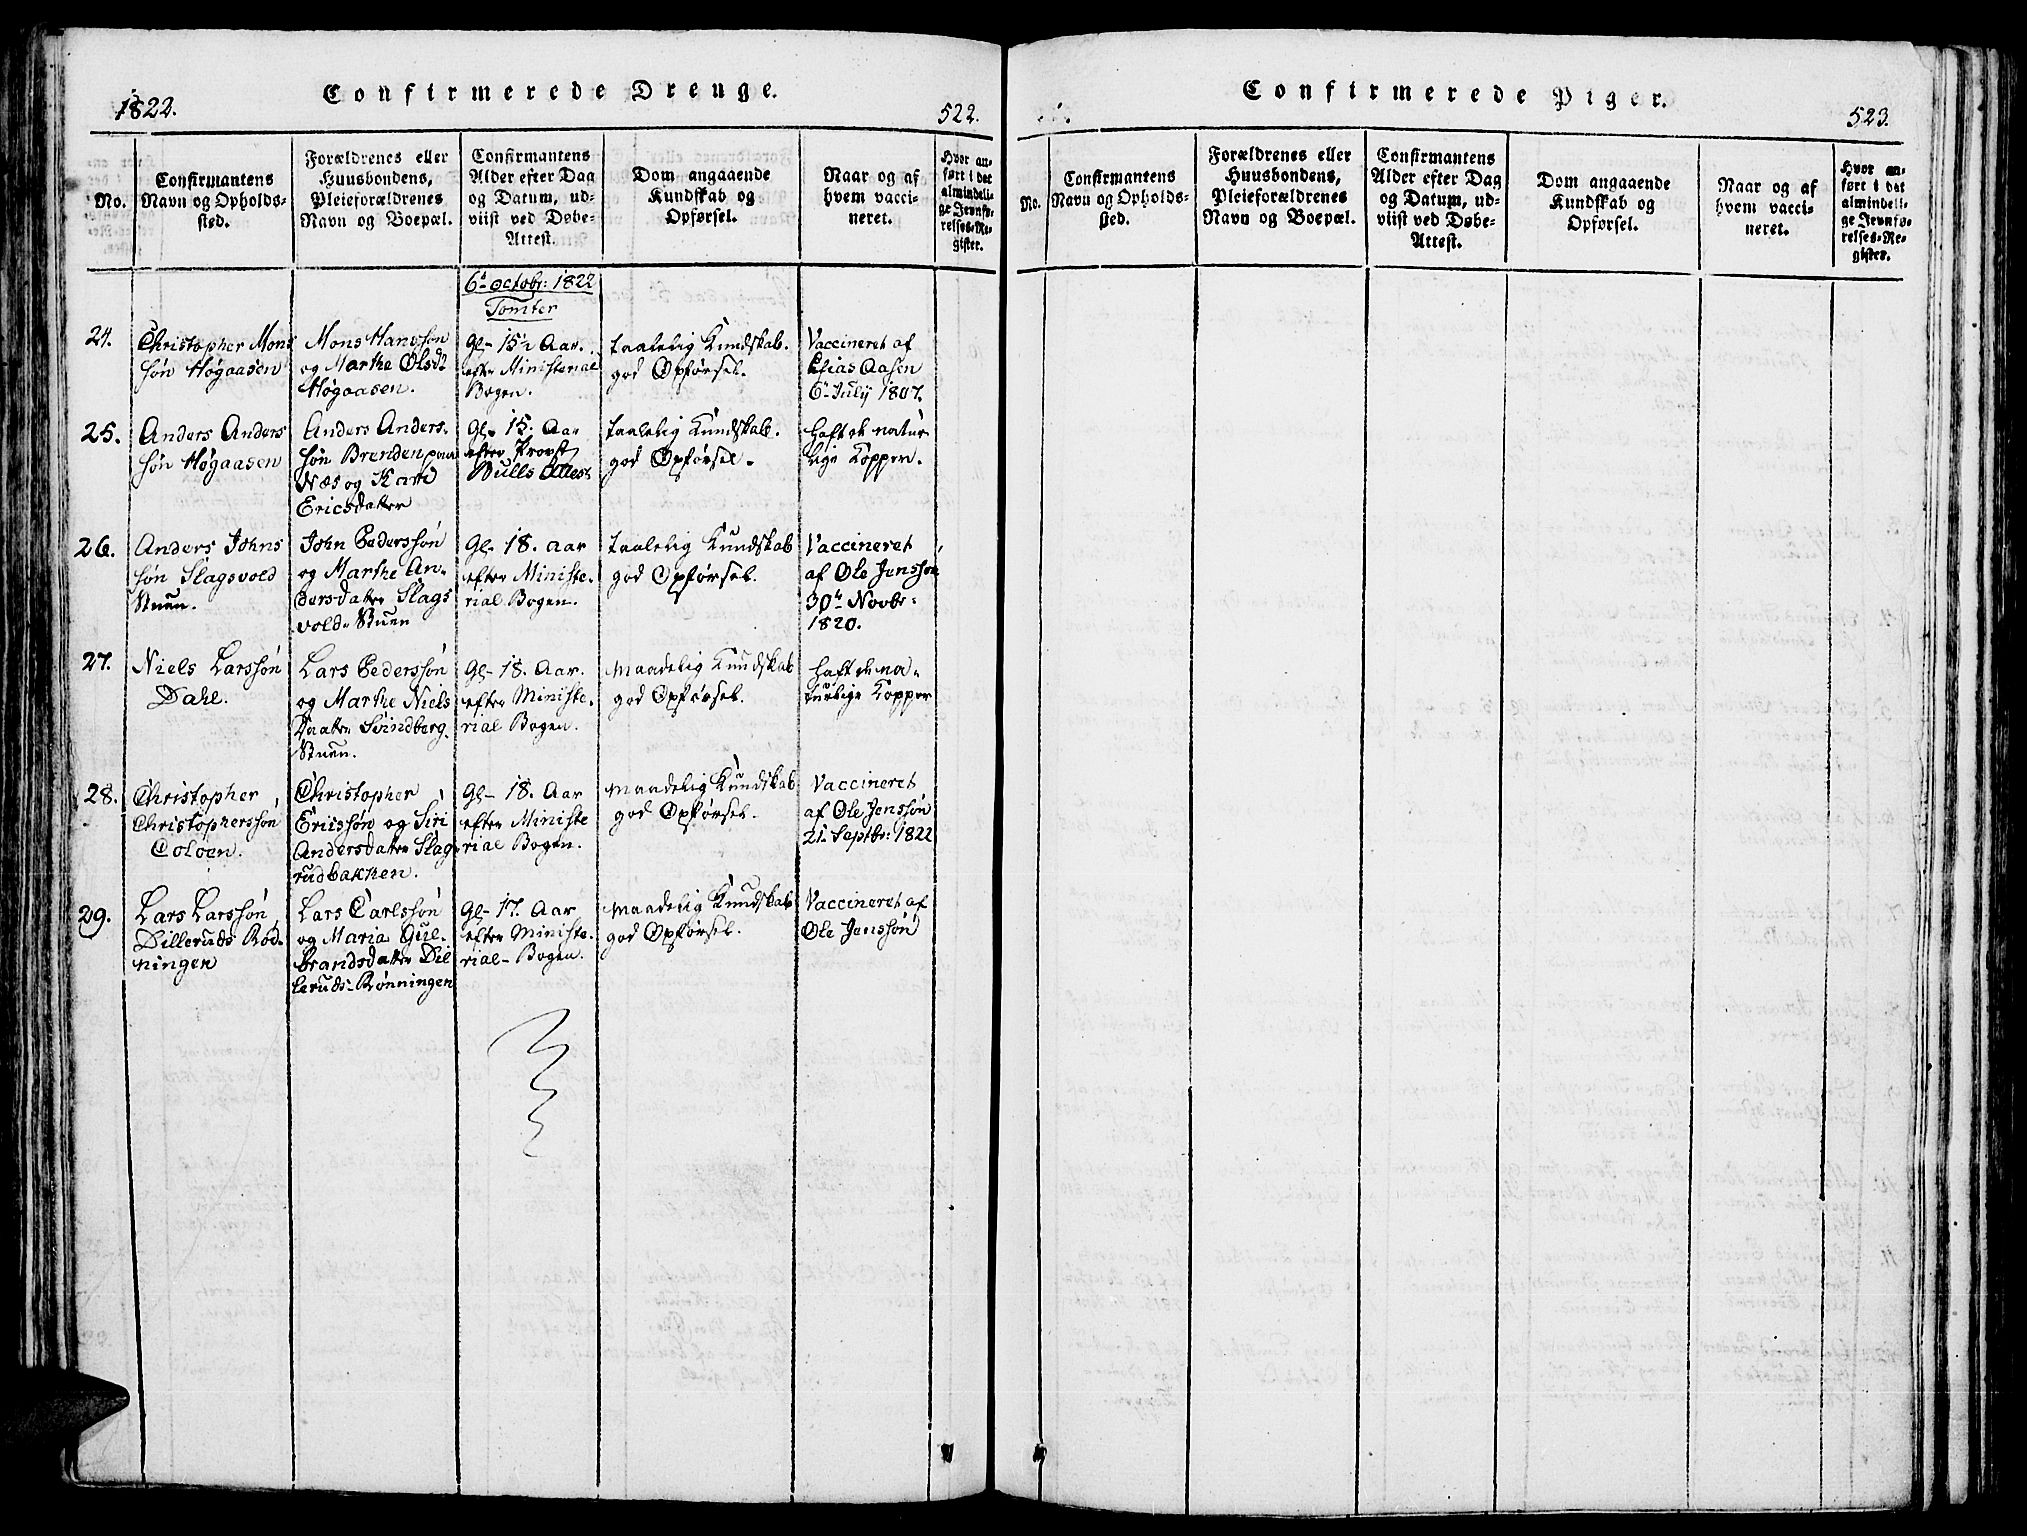 1822.
Confirmerede Drenge.
522.
No.
Confirmantens
Navn og Opholds-
sted.
Forældrenes eller
Huusbondens,
Pleieforældrenes
Navn og Boepæl.
Confirmantens
Alder efter Dag
og Datum, ud-
viist ved Døbe-
Attest.
Dom angaaende
Kundskab og
Opførsel.
Naar og af
hvem vacci-
neret.
Hvor an-
ført i det
almindeli-
ge Jevnfø-
relses-Re-
gister.
6te octobr: 1822
Tomter
24.
Christopher Mons
søn Høgaasen
Mons Hansøn
og Marthe Olsdr
Høgaasen.
Gl- 15½ Aar.
efter Ministerial
Bogen.
taalelig Kundskab.
god Opførsel.
Vaccineret af
Elias Aasen
6te July 1807.
25.
Anders Anders
søn Høgaasen
Anders Anders-
søn Brenden
Næs og Kari
Ericsdatter
Gl- 15. Aar
efter Provst
Bulls Attest
taalelig Kundskab.
god Opførsel.
haft de natur
lige Kopper.
26.
Anders Johns
søn Slagsvold
Stuen.
John Pederssøn
og Marthe An-
dersdatter Slags
vold-Stuen
Gl- 18. aar
efter Ministe-
rial Bogen.
taalelig Kundskab
god Opførsel.
Vaccineret
af Ole Jenssøn
30te Novbr-
1820.
27.
Niels Larssøn
Dahl.
Lars Pederssøn
og Marthe Niels
Daatter Svindberg-
Stuen.
Gl- 18. Aar.
efter Ministe-
rial Bogen.
Maadelig Kundskab
god Opførsel.
haft de na-
turlige Kopper
28.
Christopher
Christopherssøn
Coloen.
Christopher
Ericssøn og Siri
Andersdatter Slag-
rudbakken.
Gl- 18. Aar
efter Ministe
rial Bogen.
Maadelig Kundskab
god Opførsel.
Vaccineret
af Ole Jenssøn
21. Septbr: 1822
29.
Lars Larssøn
Dilleruds Rød-
ningen
Lars Carlssøn
og Maria Gul-
brandsdatter Dil
leruds-Rønningen
Gl- 17. Aar
efter Ministe-
rial-Bogen.
Maadelig Kundskab
god Opførsel.
Vaccineret af
Ole Jenssøn
Confirmerede Piger.
523.
No.
Confirmantens
Navn og Opholds-
sted.
Forældrenes eller
Huusbondens,
Pleieforældrenes
Navn og Boepæl.
Confirmantens
Alder efter Dag
og Datum, ud-
viist ved Døbe-
Attest.
Dom angaaende
Kundskab og
Opførsel.
Naar og af
hvem vacci-
neret.
Hvor an-
ført i det
almindeli-
ge Jevnfø-
relses-Re-
gister.